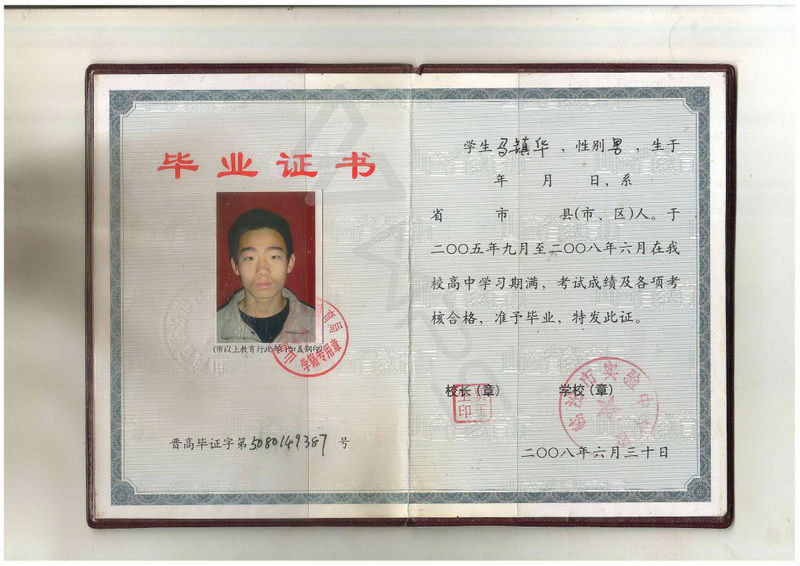 毕业证书
(市以上教育行政部门加盖钢印)
学籍专用章
晋高毕证字第5080149387号
学生马镇华，性别男，生于
年 月 日，系
省 市 县(市、区)人。于
二〇〇五年九月至二〇〇八年六月在我
校高中学习期满，考试成绩及各项考
核合格，准予毕业，特发此证。
校长(章) 学校(章)
市实验中
二〇〇八年六月三十日